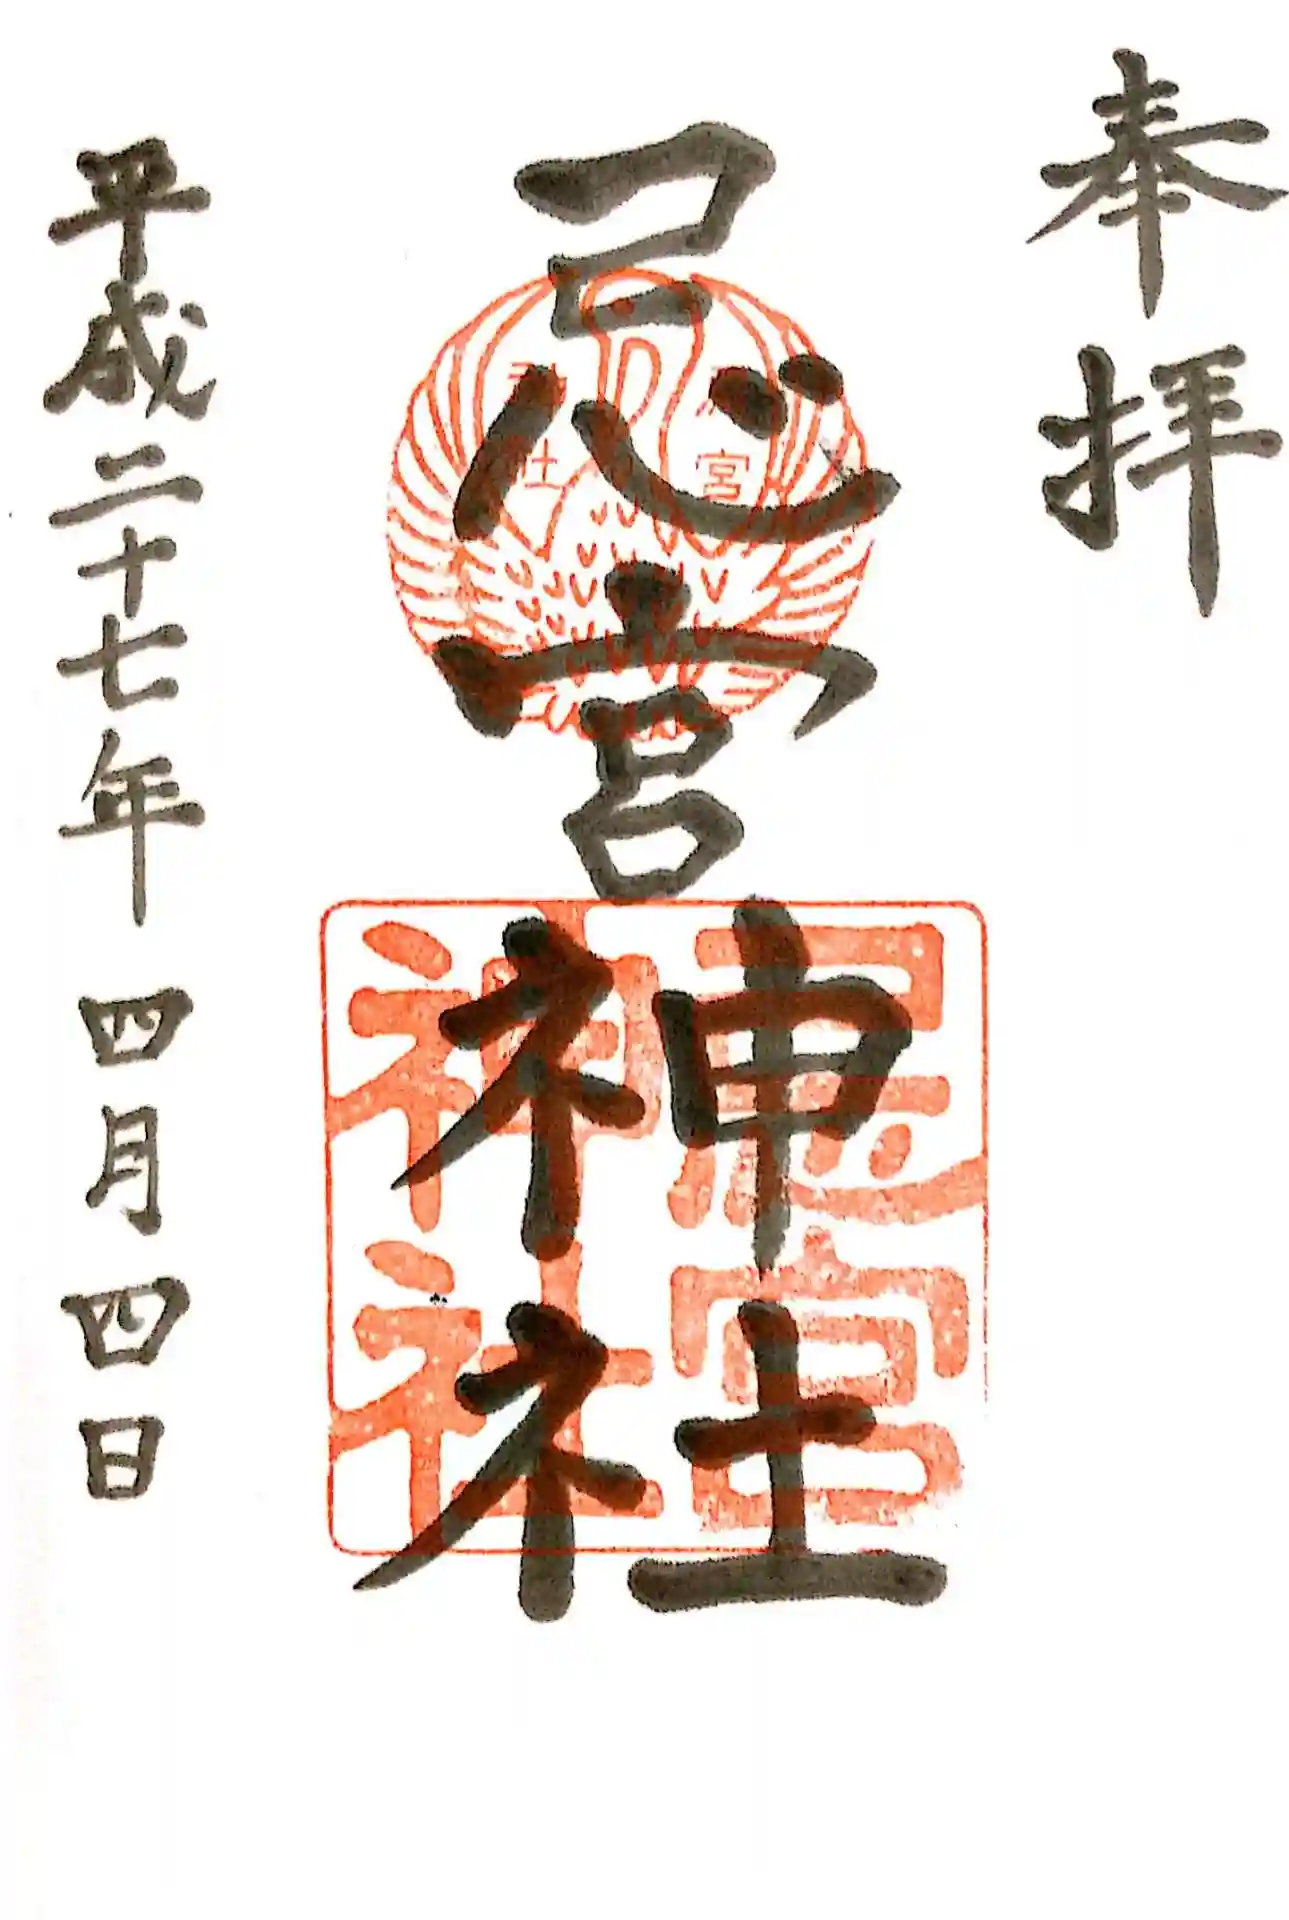 奉拝
忌宮神社
平成二十七年四月四日
忌宮
神社
宮
社